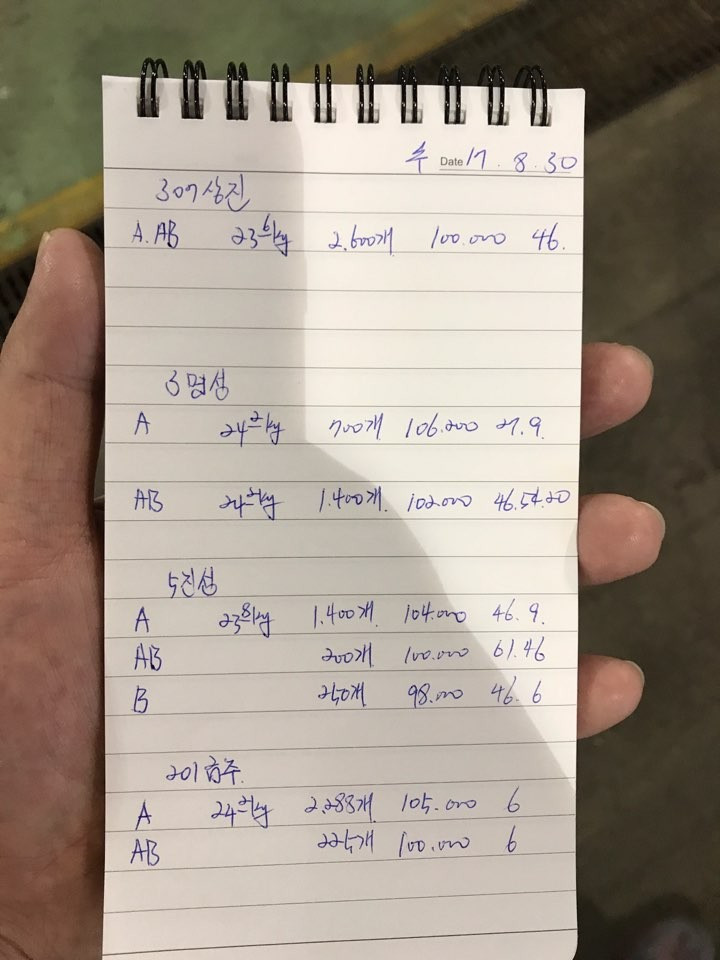 수 Date 17. 8. 30
307상진
A. AB 23⁶kg 2.600개 100.000 46.
3명성
A 24²kg 700개 106.200 27.9.
AB 24²kg 1.400개 102.000 46.54.20
5진성
A 23⁸kg 1.400개 104.000 46. 9.
AB 200개 100.000 61.46
B 250개 98.000 46. 6
201금주.
A 24²kg 2.283개 105.000 6
AB 225개 100.000 6